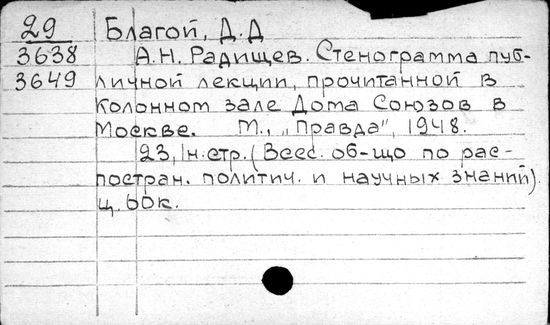 29 Благой, Д.Д
3638 А.Н. Радищев. Стенограмма пуб-
3649 личной лекции, прочитанной в
Колонном зале Дома Союзов в
Москве. М., "Правда", 1948.
23, 1 н. стр. (Всес. об-що по рас-
простран. политич. и научных знаний).
ц. 60к.